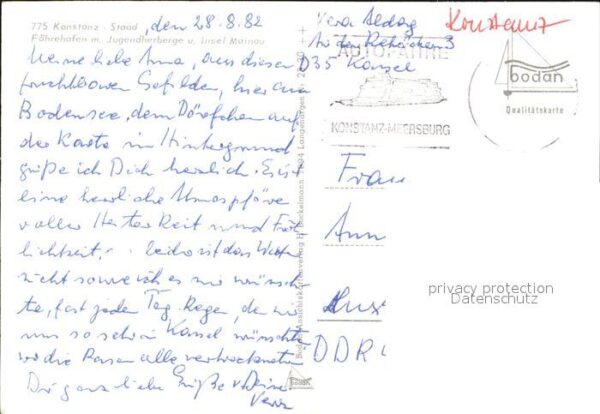 775 Konstanz - Staad, den 28.8.82
Fährehafen m. Jugendherberge u. Insel Mainau
Meine liebe Anna, aus diesen
furchtbaren Gefilden, hier am
Bodensee, dem Dörfchen auf
der Karte im Hintergrund
grüße ich Dich herzlich. Es ist
eine herrliche Atmosphäre
voller Heiterkeit und Fröh
lichkeit, leider ist das Wetter
nicht so wie ich es mir wünsch-
te, fast jeden Tag Regen, den wir
uns so sehr in Kassel wünschten
wo die Rasen alle vertrockneten
Dir ganz liebe Grüße v. Deiner
Vera
Vera
An den Rehböcken 3
D35 Kassel
Konstanz
AUTOFÄHRE
KONSTANZ-MEERSBURG
bodan
Qualitätskarte
Frau
Ann
DDR
privacy protection
Datenschutz